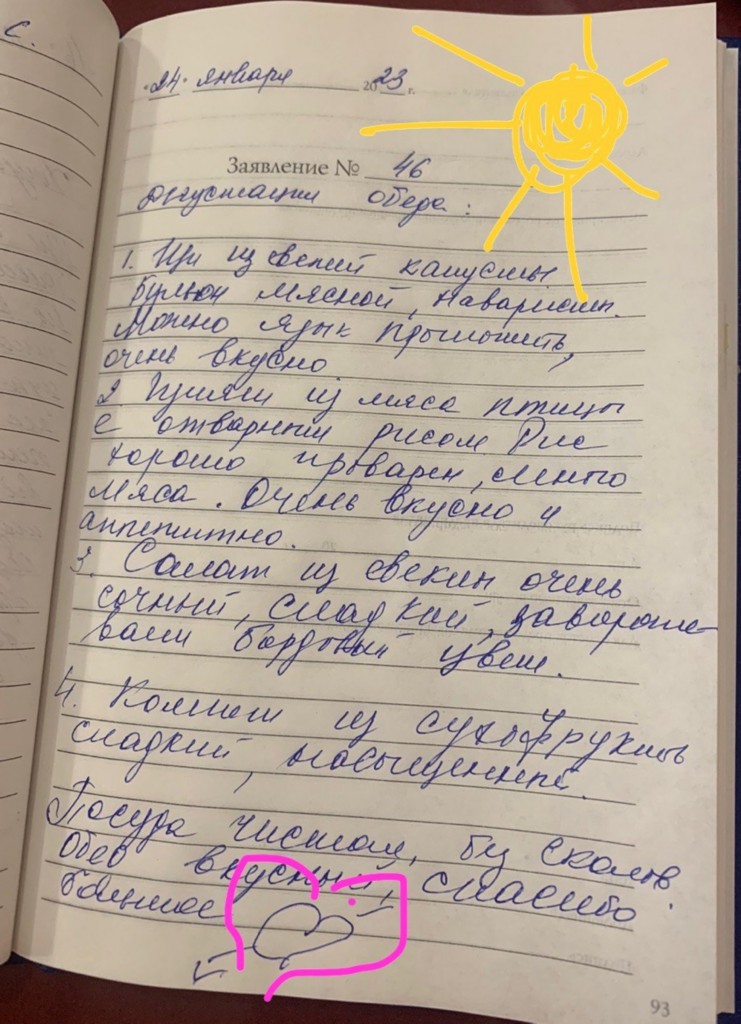 С.
"24" января 2023 г.
Заявление № 46
дегустации обеда:
1. Щи из свежей капусты
бульон мясной, наваристый.
Можно язык проглотить,
очень вкусно.
2 Гуляш из мяса птицы
с отварным рисом Рис
хорошо проварен, много
мяса. Очень вкусно и
аппетитно.
3. Салат из свеклы очень
сочный, сладкий, завораж-
вает бордовый цвет.
4. Компот из сухофруктов
сладкий, насыщенный.
Посуда чистая, без сколов.
Обед вкусный, спасибо
большое
93